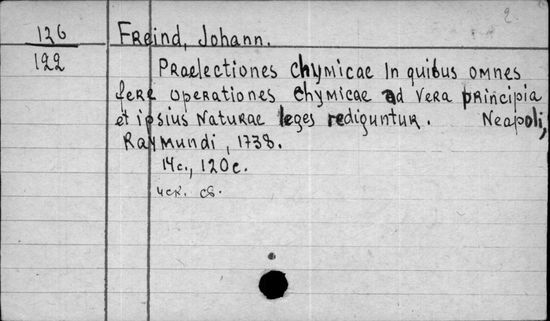 136
122
Freind, Johann.
Praelectiones chymicae In quibus omnes
fere operationes chymicae ad vera principia
et ipsius Naturae leges rediguntur. Neapoli,
Raymundi, 1738.
14c., 120c.
иск. св.